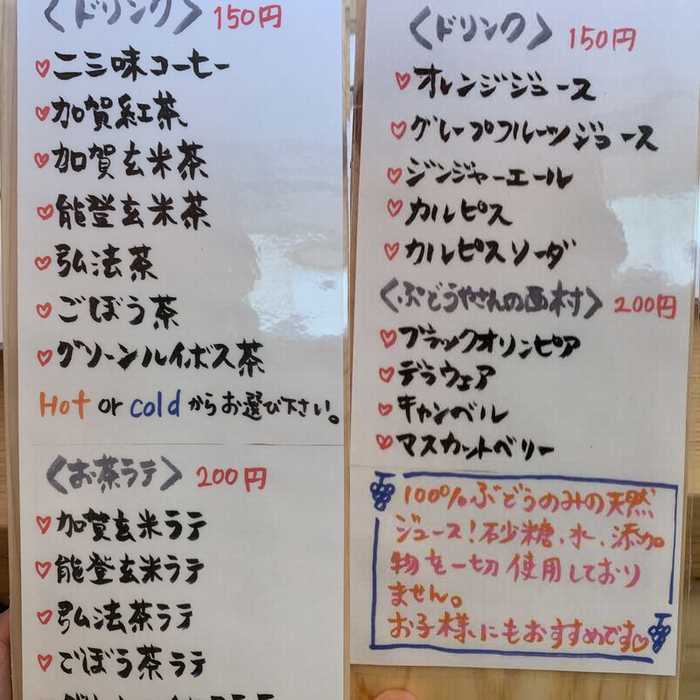 〈ドリンク〉 150円
♡二三味コーヒー
♡加賀紅茶
♡加賀玄米茶
♡能登玄米茶
♡弘法茶
♡ごぼう茶
♡グリーンルイボス茶
Hot or coldからお選び下さい。
〈お茶ラテ〉 200円
♡加賀玄米ラテ
♡能登玄米ラテ
♡弘法茶ラテ
♡ごぼう茶ラテ
〈ドリンク〉 150円
♡オレンジジュース
♡グレープフルーツジュース
♡ジンジャーエール
♡カルピス
♡カルピスソーダ
〈ぶどうやさんの西村〉 200円
♡ブラックオリンピア
♡デラウェア
♡キャンベル
♡マスカットベリー
100%ぶどうのみの天然
ジュース!砂糖、水、添加
物を一切使用しており
ません。
お子様にもおすすめです♡